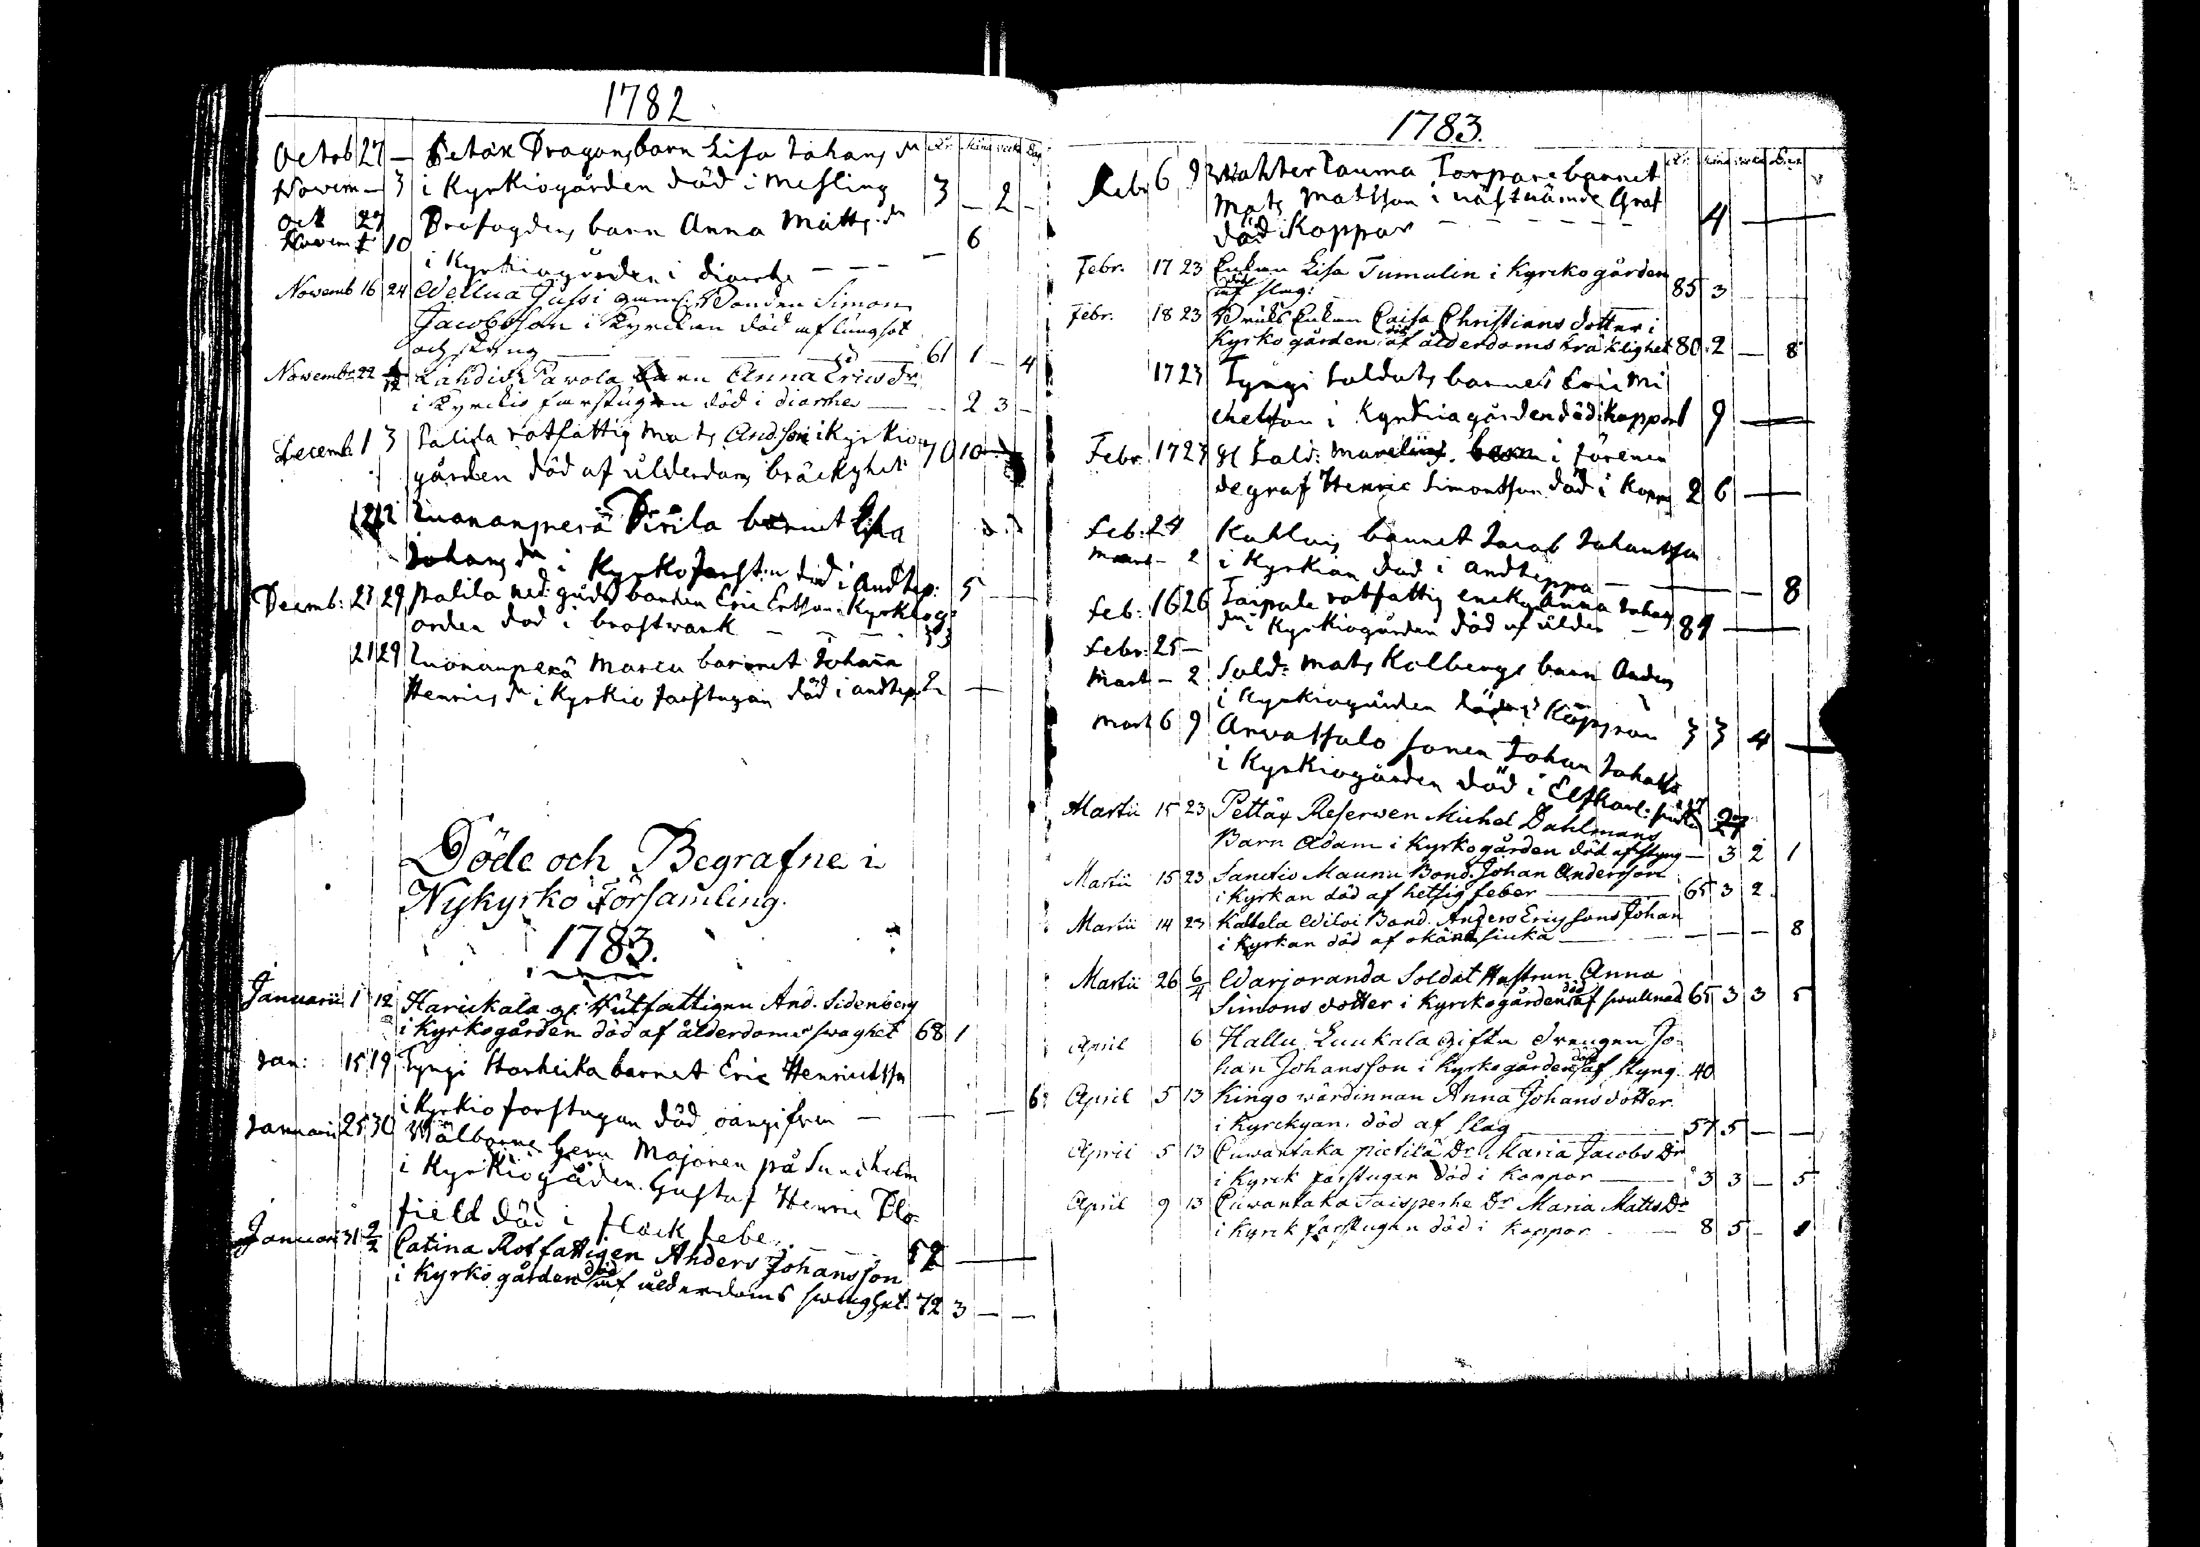 1782
Octob 27 — Petäx Dragons barn Lisa Johans dr År Mån veck Dag
Novem — 3 i Kyrkiogården död i Mesling 3 — 2 —
Oct 27 Profogdens barn Anna Matts dr
Novem 10 i Kyrkiogården i diarrhe — — — — 6
Novemb 16 24 Wellua Jussi gamℓ. Bonden Simon
Jacobsson i Kyrckan död af lungsot
och styng — 61 1 — 4
Novemb. 22 Lahdis Pavola barn Anna Erics dr
i Kyrckio farstugun död i diarrhe — 2 3 —
Decemb. 1 3 Palila rotfattig Mats Andsson i Kyrkio
gården död af ålderdoms bräcklighet 70 10
12 Luonanperä Pirila barnet Lisa
Johans dr i Kyrko farst:n död i Andtep: 5
Decemb: 23 29 Palila ned: gårds bonden Eric Ersson i Kyrkiog
ården död i brostwärk — — — 33
21 29 Luonanperä Marcu barnet Johanna
Henrics dr i Kyrkio farstugan död i andtep. 2 —
Döde och Begrafne i
Nykyrko Församling.
1783.
Januarii 1 12 Harickala gℓ. Rutfattigen And. Sidenberg
i Kyrkogården död af ålderdoms swaghet 68 1
Jan: 15 19 Tyngi Harheika barnet Eric Henricksson
i Kyrkio forstugan död oangifven — — — 6
Januarii 25 30 Wälborne herr Majoren på Sundholm
i Kyrkiogården Gustaf Henric Blo-
field död i fläck feber 52 —
Januarii 31 2/2 Catina Rotfattigen Anders Johansson
i Kyrko gården död af ålderdoms swaghet 72 3 — —
1783.
Febr 6 9 Wahter Rauma Torpare barnet År Mån veck Dag
Mats Matsson i nästnämde Graf
död i Koppor — — — 4 —
Febr. 17 23 Enkan Lisa Tumulin i Kyrckogården
död af slag: 85 3
Febr. 18 23 Bruks Enkan Caisa Christians dotter i
Kyrko gården död af ålderdoms bräklighet 80 2 — 8
17 23 Tyngi Soldats barnet Eric Mi
chelson i Kyrkiagården död i koppor 1 9 —
Febr 17 23 gℓ Sold: barn i förenem
de graf Henric Simonsson död i Koppor 2 6 —
Feb: 24 Kahluis barnet Jacob Johansson
Mart — 2 i Kyrkian död i andteppa — — — 8
Feb: 16 26 Taipale rotfattig encka Anna Johans
dr i Kyrkiogården död af ålder — 84 —
Febr: 25 —
Mart — 2 Sold: Mats Kalbergs barn Anders
i Kyrkiogården död i Koppor 3 3 4 —
Mart 6 9 Arwassalo sonen Johan Johansson
i Kyrkiogården död i 27
Martii 15 23 Pettäy Reserven Michel Dahlmans
Barn Adam i Kyrkogården död af styng — 3 2 1
Martii 15 23 Sanctio Maunu Bond. Johan Andersson
i Kyrkan död af hetsig feber — 65 3 2
Martii 14 23 Kattela Wiloi Bond. Anders Ericssons Johan
i Kyrkan död af okänd siuka — — — 8
Martii 26 6/4 Warjoranda Soldat Hustrun Anna
Simons dotter i Kyrckogården död af swullnad 65 3 3 5
April 6 Hallu Luukala gifta Drengen Jo-
han Johansson i Kyrkogården död af styng. 40
April 5 13 Kingo wärdinnan Anna Johansdotter
i Kyrckyan. död af slag — 57 5 — —
April 5 13 Cuwantaka pietilä Dr Maria Jacobs Dr
i Kyrck farstugan död i Koppor — 3 3 — 5
April 9 13 Cuwantaka Taisperhe Dr Maria Matts Dr
i Kyrck farstugan död i Koppor — 8 5 —